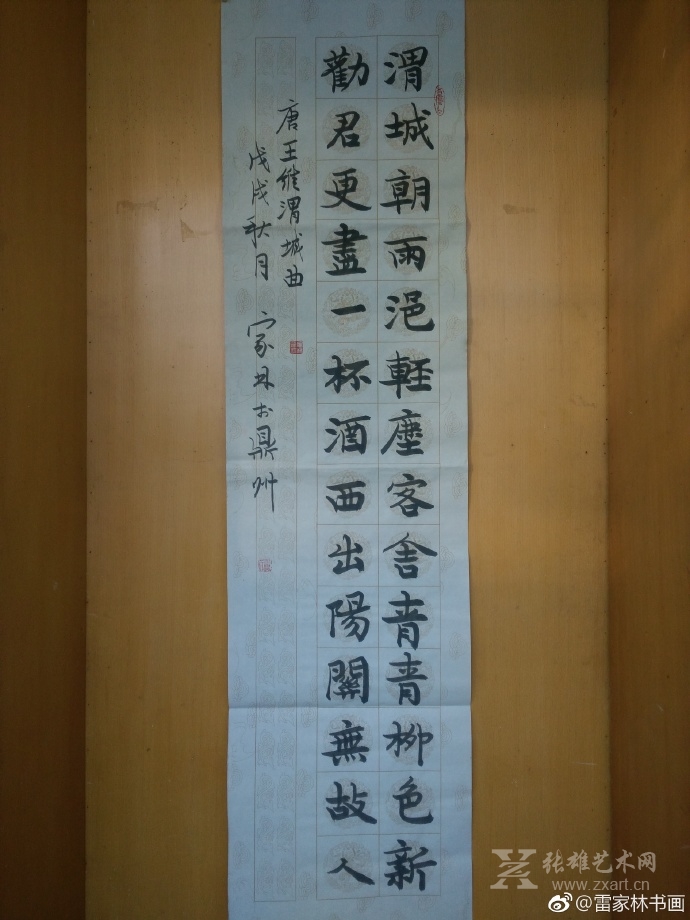 渭城朝雨浥輕塵客舍青青柳色新
勸君更盡一杯酒西出陽關無故人
唐王維渭城曲
戊戌秋月 家林於鼎州
张雄艺术网
www.zxart.cn
@雷家林书画